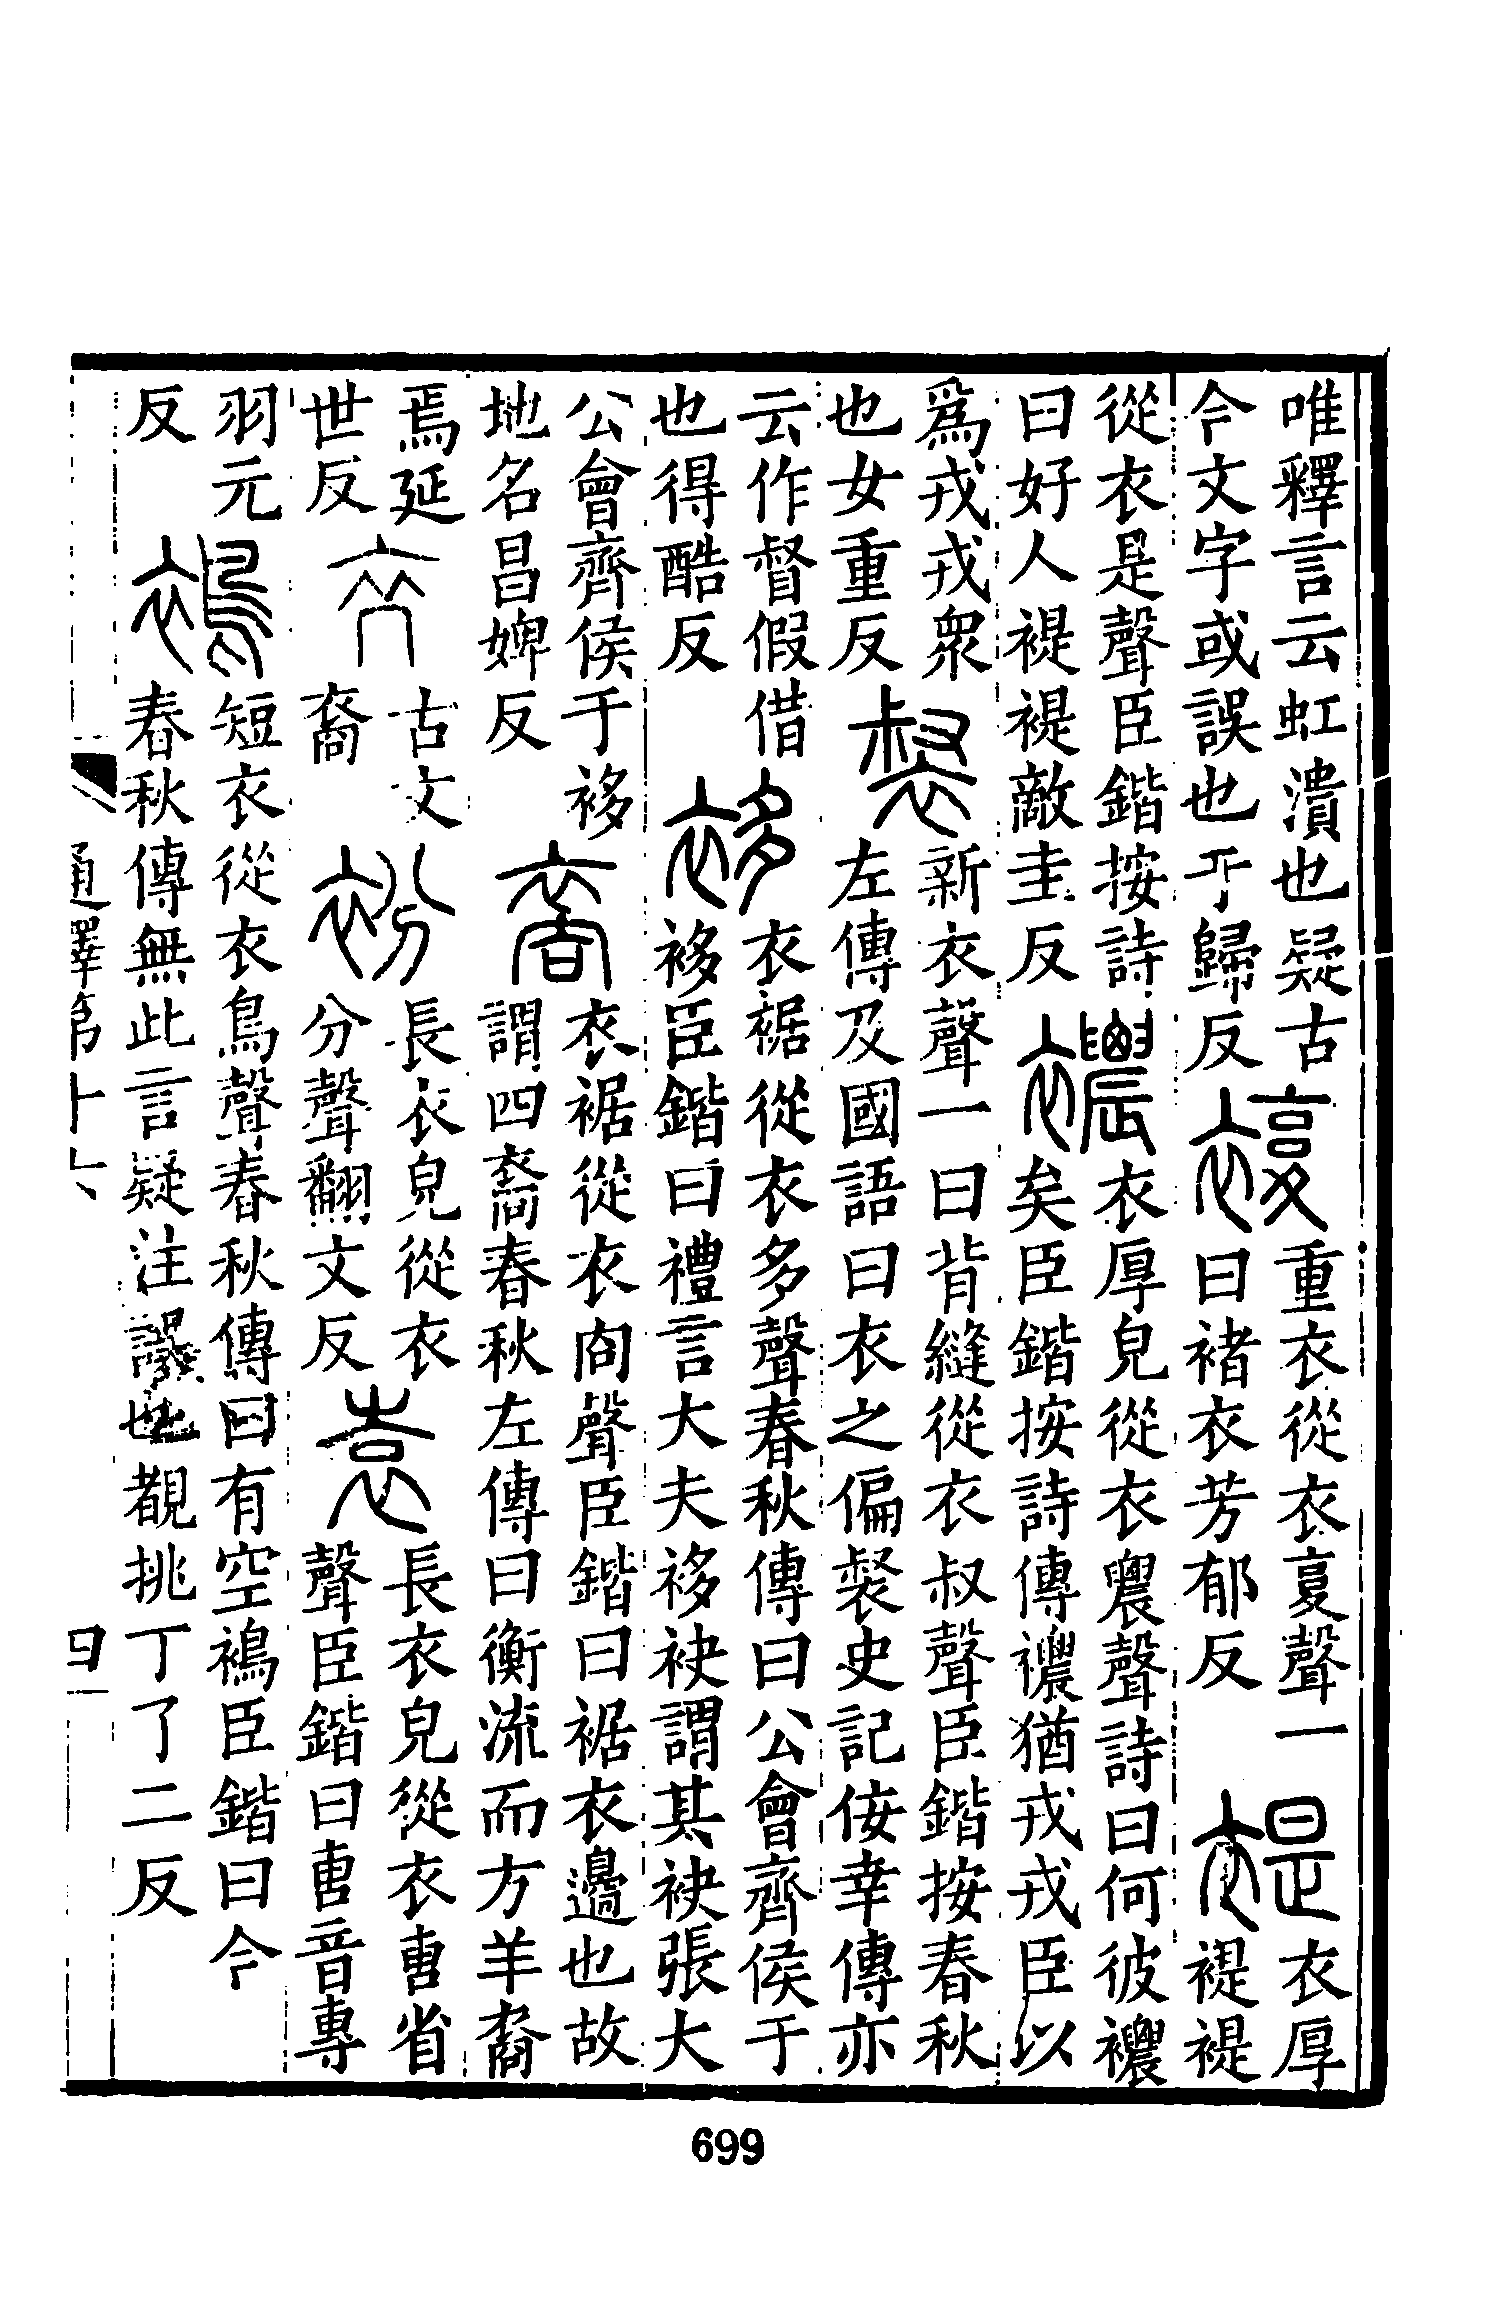 唯釋言云虹潰也疑古
今文字或誤也丂歸反
複
重衣從衣复聲一
曰褚衣芳郁反
褆
衣厚
褆褆
從衣是聲臣鍇按詩
曰好人褆褆敵圭反
襛
衣厚皃從衣農聲詩曰何彼襛
矣臣鍇按詩傳襛猶戎戎臣以
爲戎戎衆
也女重反
裻
新衣聲一曰背縫從衣叔聲臣鍇按春秋
左傳及國語曰衣之偏裻史記佞幸傳亦
云作督假借
也得酷反
袳
衣裾從衣多聲春秋傳曰公會齊侯于
袳臣鍇曰禮言大夫袳袂謂其袂張大
公會齊侯于袳
地名昌婢反
裔
衣裾從衣㕯聲臣鍇曰裾衣邊也故
謂四裔春秋左傳曰衡流而方羊裔
焉延
世反
古文
裔
衯
長衣皃從衣
分聲翻文反
袁
長衣皃從衣叀省
聲臣鍇曰叀音專
羽元
反
䙚
短衣從衣鳥聲春秋傳曰有空䙚臣鍇曰今
春秋傳無此言疑注誤也覩挑丁了二反
通釋第十六
四
699